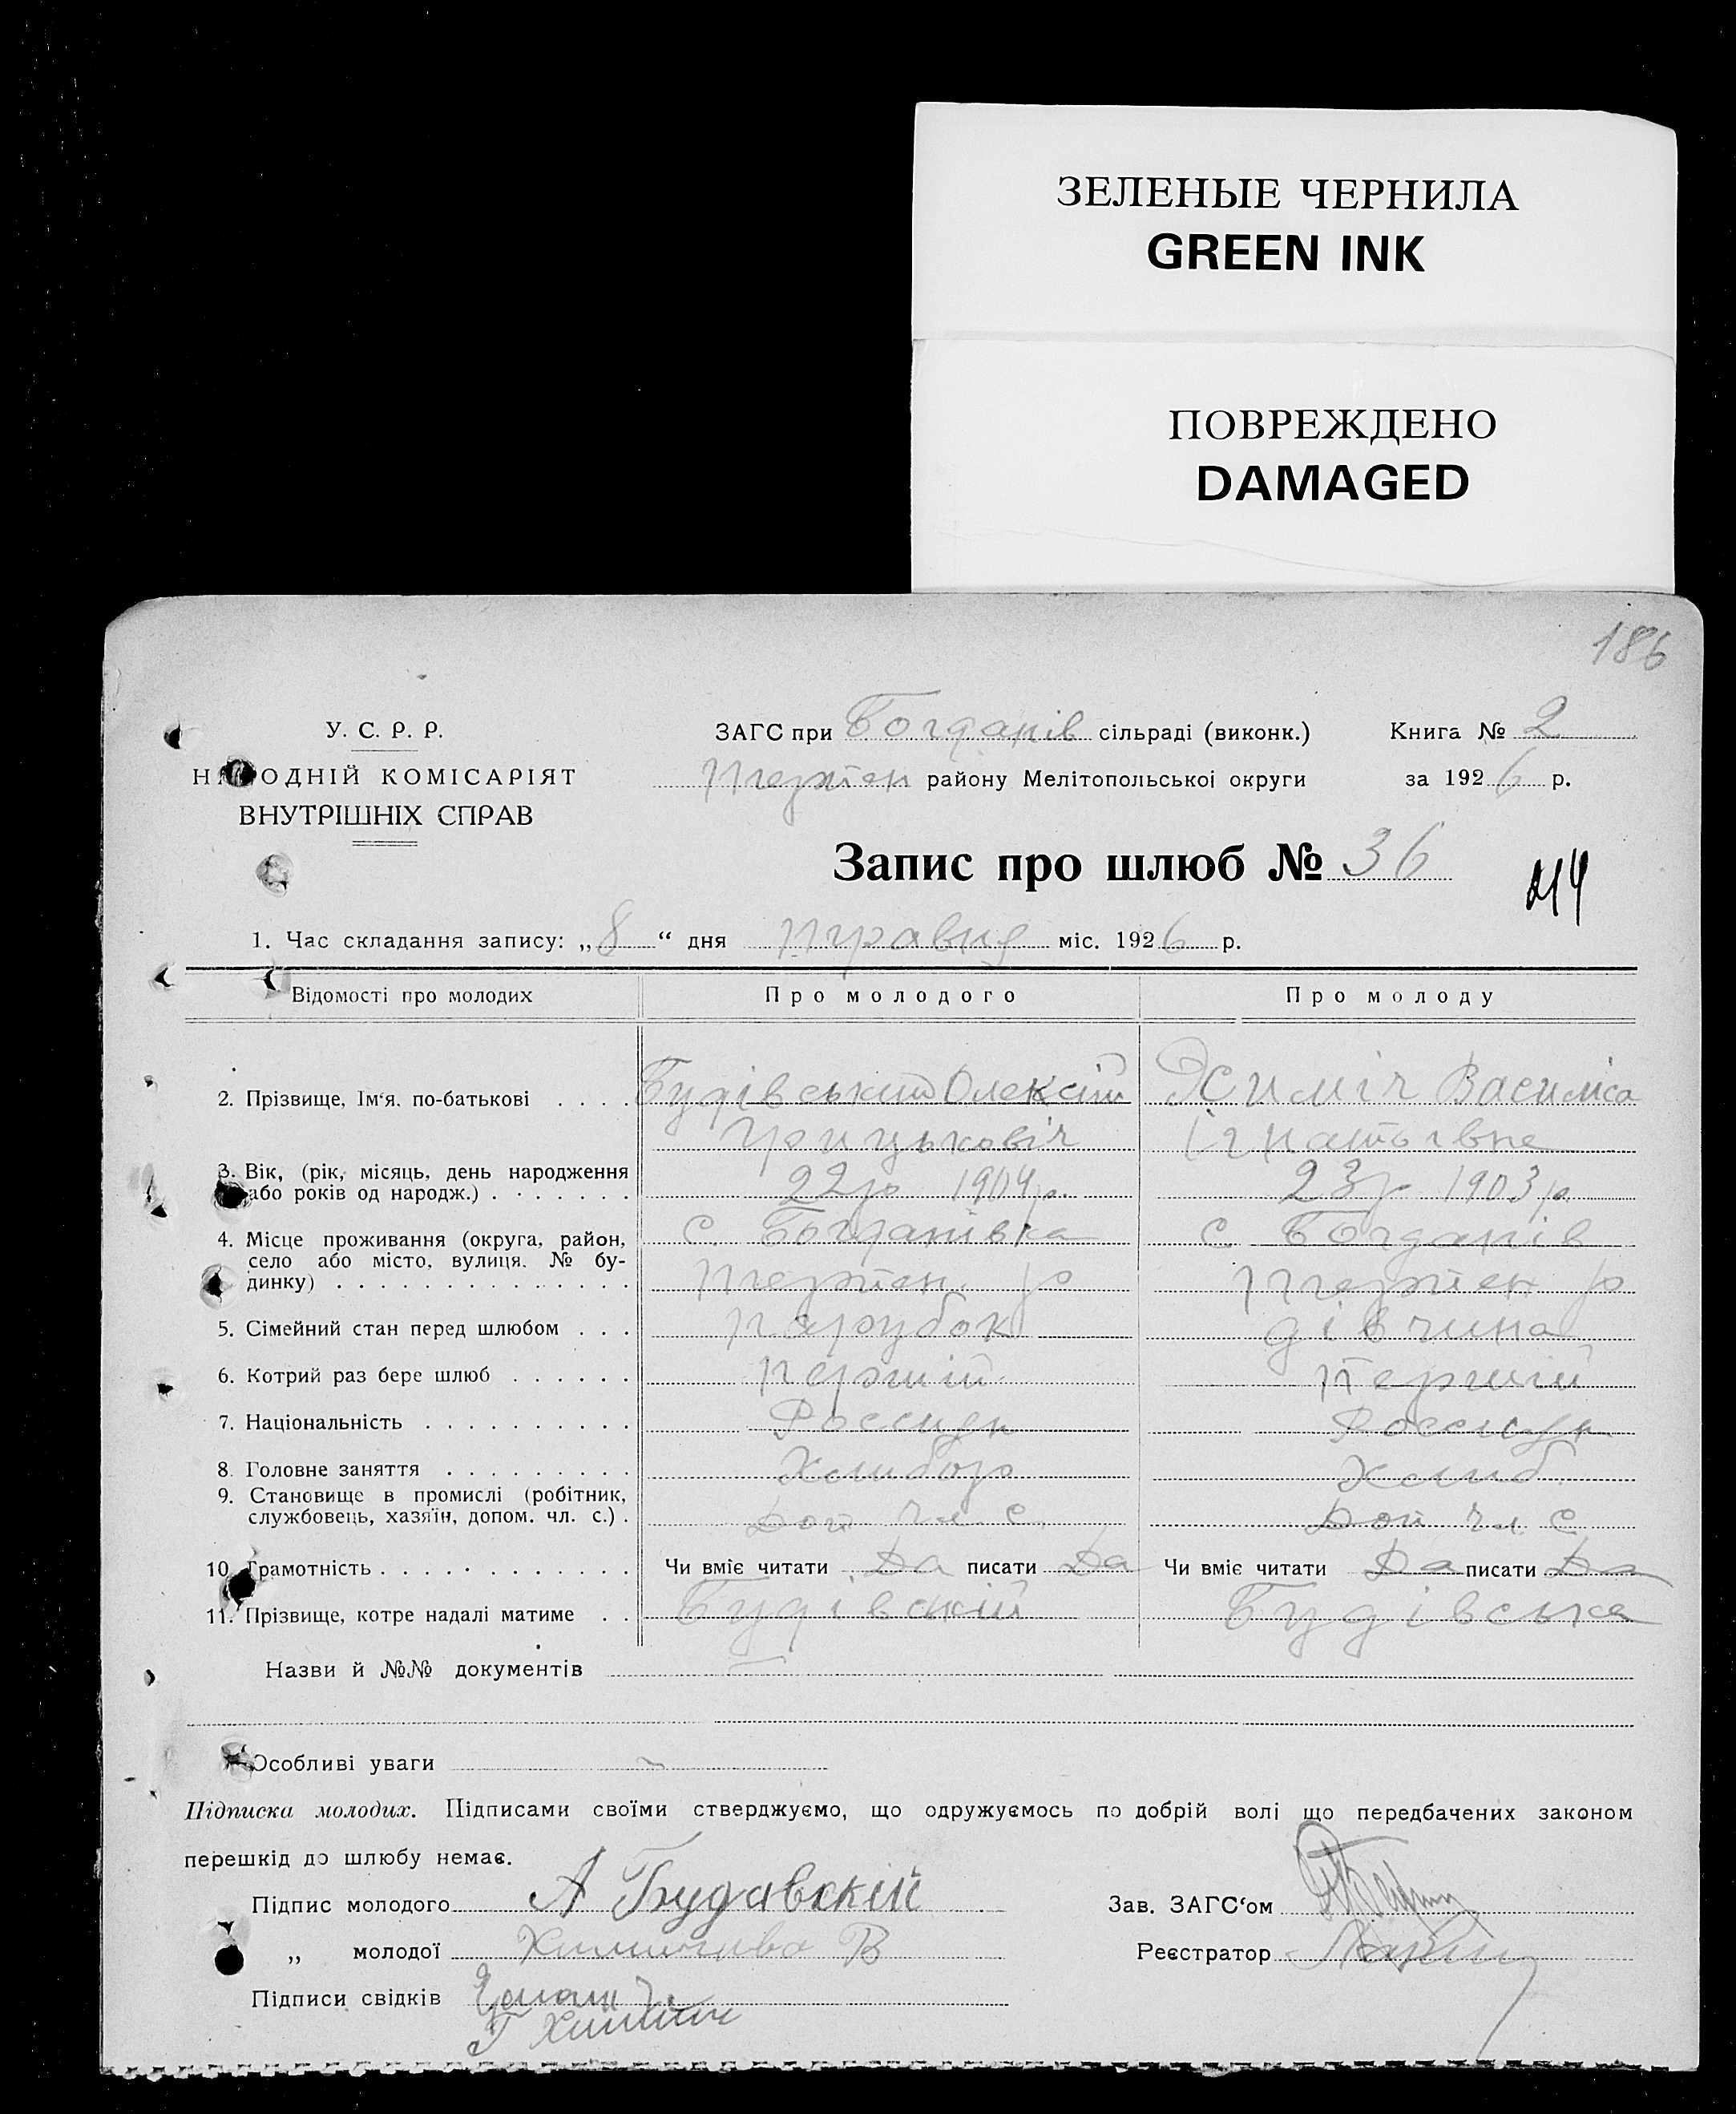 ЗЕЛЕНЫЕ ЧЕРНИЛА
GREEN INK
ПОВРЕЖДЕНО
DAMAGED
186
У. С. Р. Р.
НАРОДНІЙ КОМІСАРІЯТ
ВНУТРІШНІХ СПРАВ
ЗАГС при Богданів сільраді (виконк.) Книга № 2
району Мелітопольської округи за 1926 р.
Запис про шлюб № 36
214
1. Час складання запису: „8“ дня травня міс. 1926 р.
Відомості про молодих Про молодого Про молоду
2. Прізвище, Ім'я, по-батькові . . . . Будівський Олексій Химіч Василіса
Грицьковіч Ігнатьівна
3. Вік, (рік, місяць, день народження
або років од народж.) . . . . . . . 22 р 1904 р. 23 р 1903 р.
4. Місце проживання (округа, район, с. Богданівка с Богданів
село або місто, вулиця. № бу-
динку) . . . . . . . . . . . . . . р р
5. Сімейний стан перед шлюбом . . . парубок дівчина
6. Котрий раз бере шлюб . . . . . . першій першій
7. Національність . . . . . . . . . .
8. Головне заняття . . . . . . . . . Хлибор Хлиб
9. Становище в промислі (робітник,
службовець, хазяїн, допом. чл. с.) . Доп чл. с. Доп чл с
10. Грамотність . . . . . . . . . . . . Чи вміє читати Да писати Да Чи вміє читати Да писати Да
11. Прізвище, котре надалі матиме . . Будівскій Будівська
Назви й №№ документів —
Особливі уваги
Підписка молодих. Підписами своїми стверджуємо, що одружуємось по добрій волі що передбачених законом
перешкід до шлюбу немає.
Підпис молодого А Будавскій Зав. ЗАГС'ом
„ молодої В Реєстратор
Підписи свідків